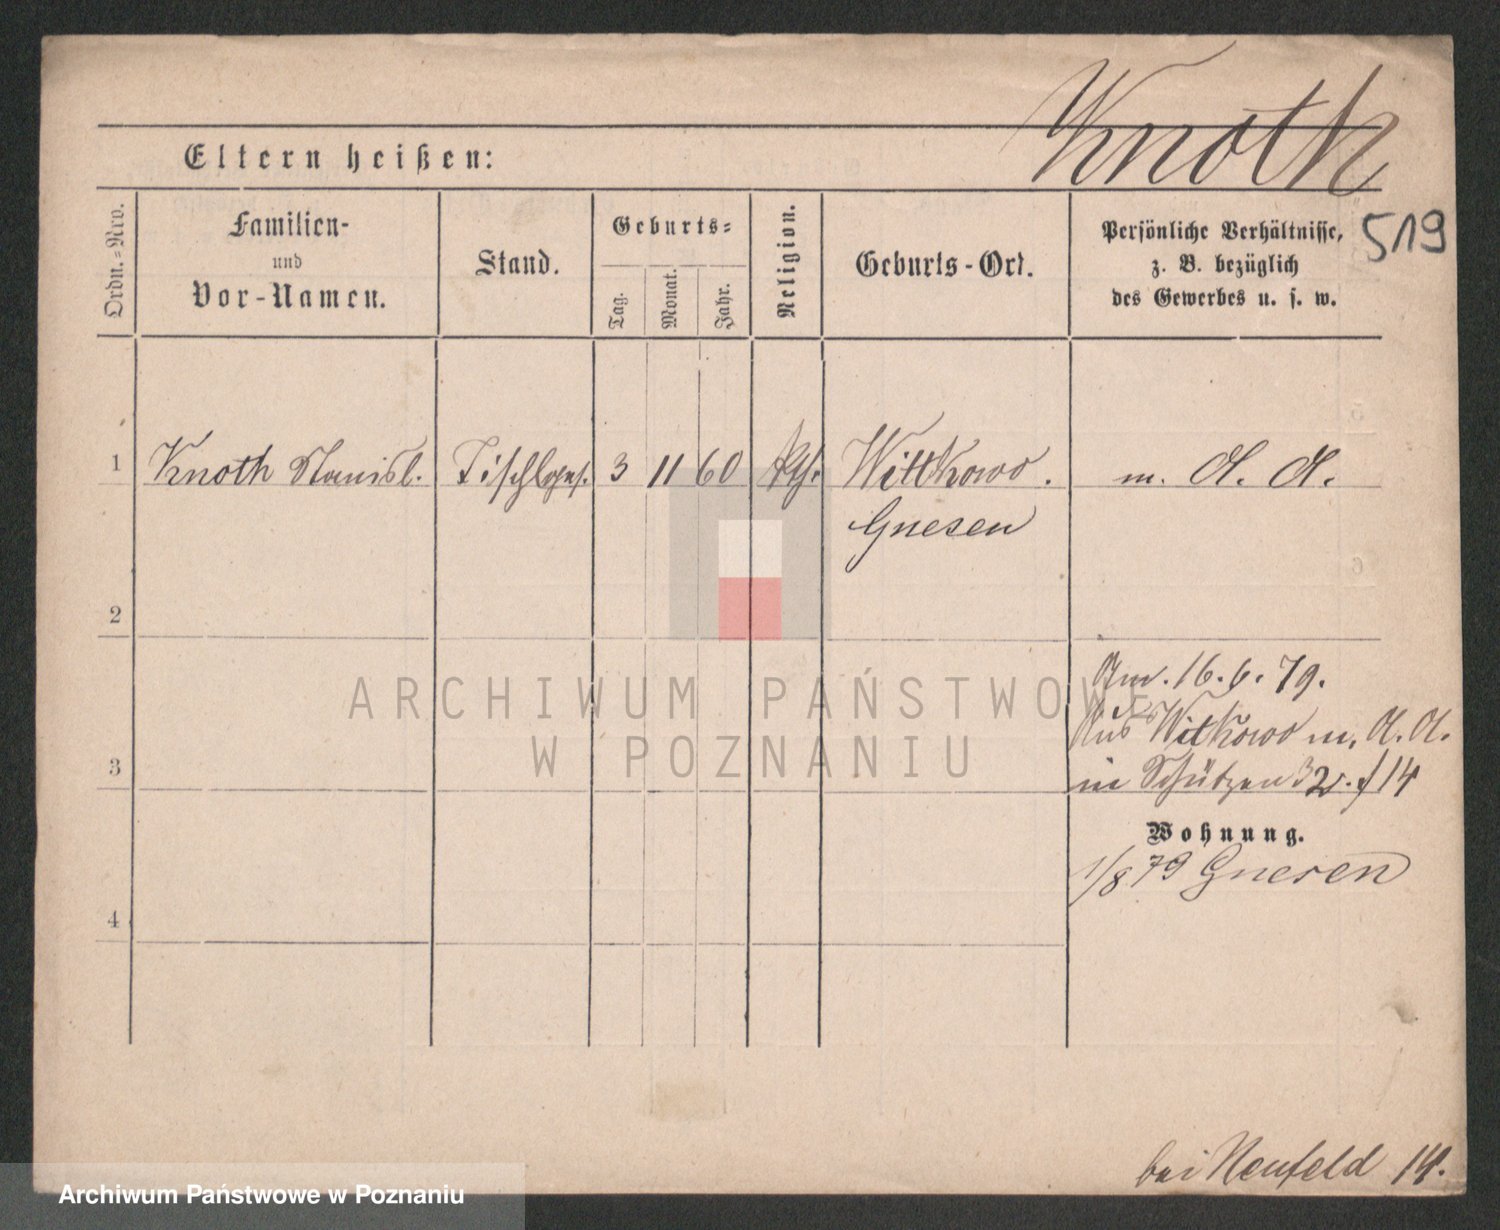 Knoth
Eltern heißen:
519
Ordn.-Nro.
Familien-
und
Vor-Namen.
Stand.
Geburts-
Tag.
Monat.
Jahr.
Religion.
Geburts-Ort.
Persönliche Verhältnisse,
z. B. bezüglich
des Gewerbes u. s. w.
1 Knoth Stanisl. Tischlerges. 3 11 60 kth. Wittkowo. m. A. A.
Gnesen
2
Anw. 16. 6. 79.
Aus Witkowo m. A. A.
3 in Schützen 14
Wohnung.
1/8 79 Gnesen
4
bei Neufeld 14.
ARCHIWUM PAŃSTWOWE
W POZNANIU
Archiwum Państwowe w Poznaniu